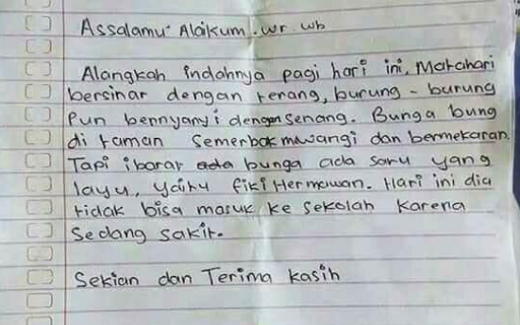 Assalamu' Alaikum. wr. wb
Alangkah indahnya pagi hari ini, Matahari
bersinar dengan terang, burung - burung
pun bennyanyi dengan senang. Bunga bung
di taman semerbak mwangi dan bermekaran.
Tapi ibarat ada bunga ada satu yang
layu, yaitu fiki Hermawan. Hari ini dia
tidak bisa masuk ke sekolah karena
Sedang sakit.
Sekian dan Terima kasih